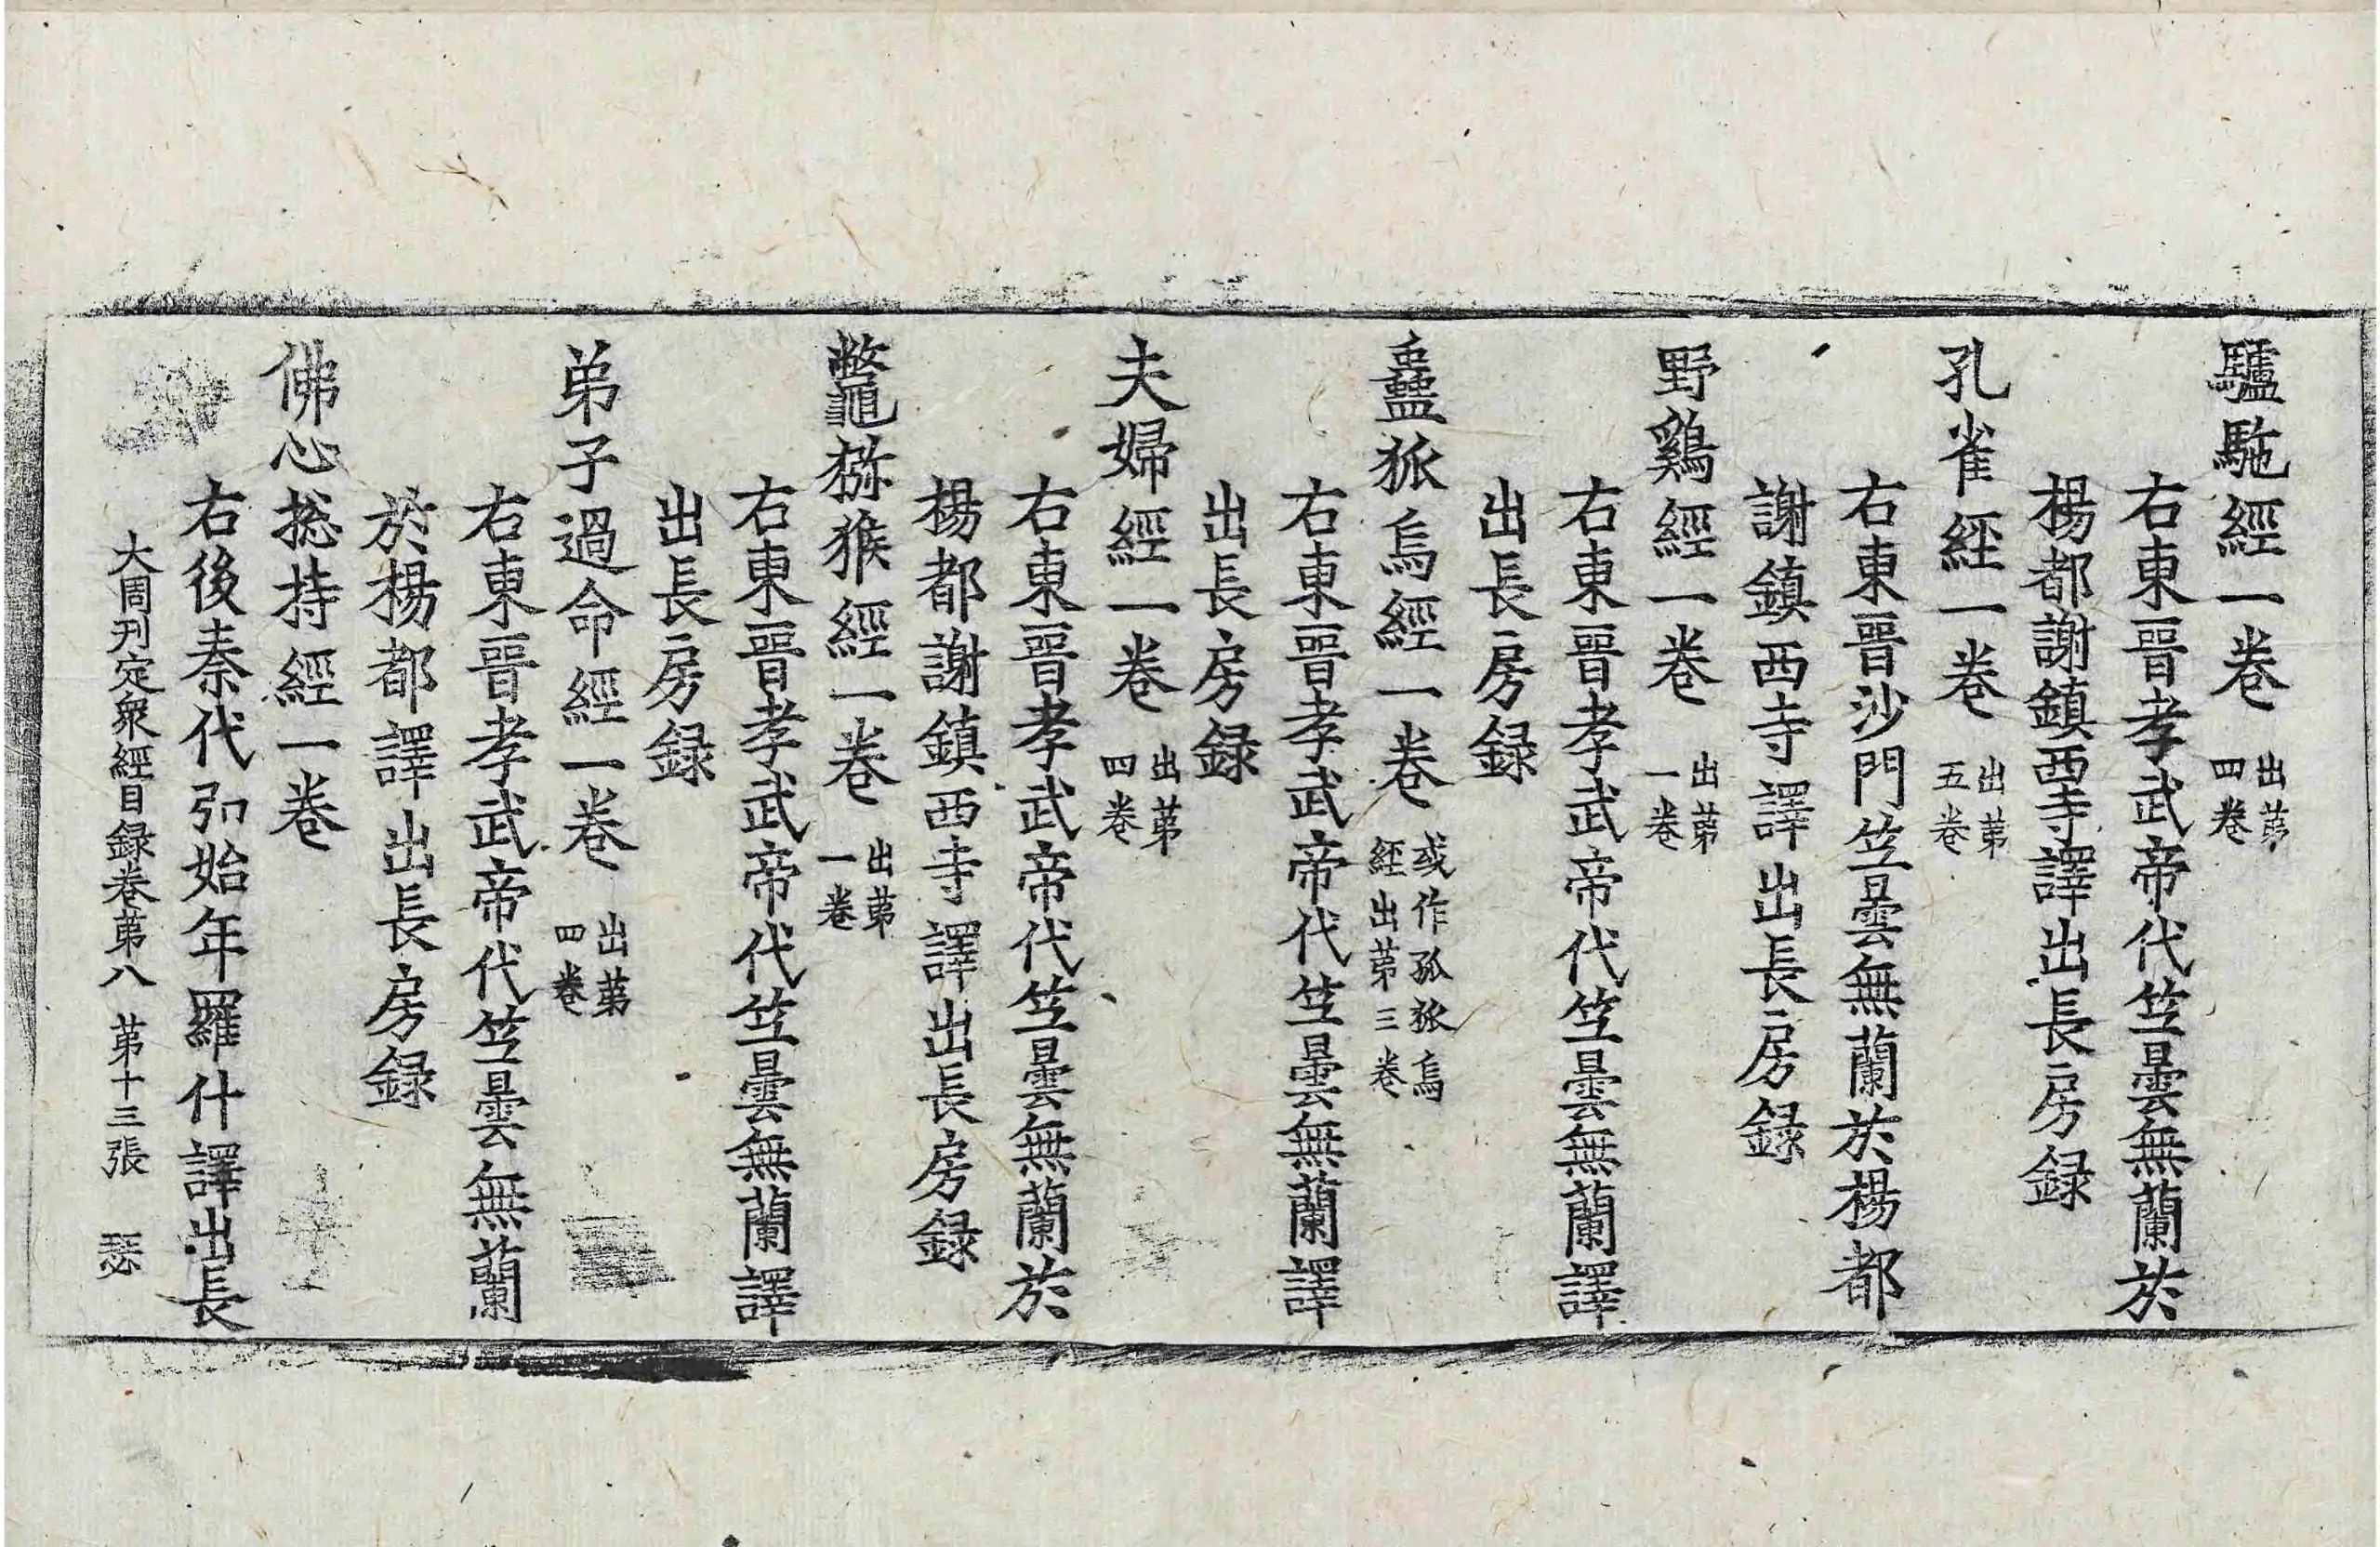 驢駞經一卷 出苐四卷
右東晉孝武帝代竺曇無蘭於
楊都謝鎮西寺譯出長房録
孔雀經一卷 出苐五卷
右東晉沙門竺曇無蘭於楊都
謝鎮西寺譯出長房録
野鷄經一卷 出苐一卷
右東晉孝武帝代竺曇無蘭譯
出長房録
蠱狐烏經一卷 或作孤狐烏經出苐三卷
右東晉孝武帝代竺曇無蘭譯
出長房録
夫婦經一卷 出苐四卷
右東晉孝武帝代竺曇無蘭於
楊都謝鎮西寺譯出長房録
鼈猕猴經一卷 出苐一卷
右東晉孝武帝代竺曇無蘭譯
出長房録
弟子過命經一卷 出苐四卷
右東晉孝武帝代竺曇無蘭
於楊都譯出長房録
佛心捴持經一卷
右後秦代弘始年羅什譯出長
大周刊定衆經目録卷苐八 苐十三張 瑟